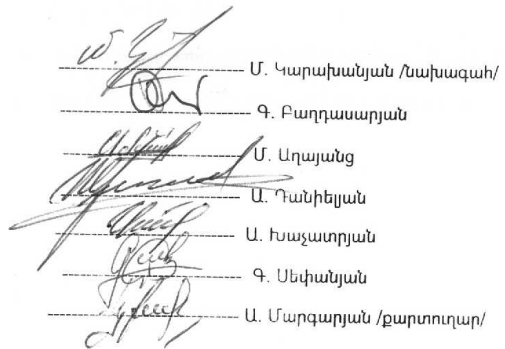 Մ. Կարախանյան /նախագահ/
Գ. Բաղդասարյան
Մ. Աղայանց
Ա. Դանիելյան
Ա. Խաչատրյան
Գ. Ստեփանյան
Ա. Մարգարյան /քարտուղար/